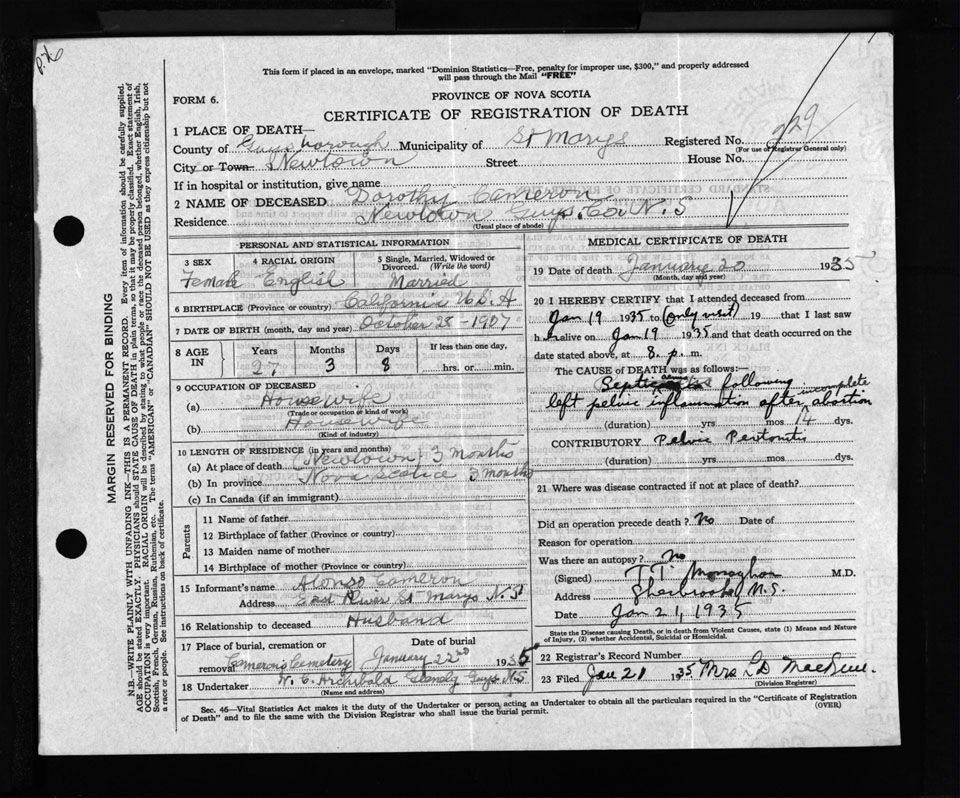 P.X.
This form if placed in an envelope, marked "Dominion Statistics—Free, penalty for improper use, $300," and properly addressed
will pass through the Mail "FREE"
FORM 6.
PROVINCE OF NOVA SCOTIA
CERTIFICATE OF REGISTRATION OF DEATH
1 PLACE OF DEATH—
County of Guysborough Municipality of St Marys Registered No. 229
(For use of Registrar General only)
City or Town— Newtown Street House No.
If in hospital or institution, give name
2 NAME OF DECEASED Dorothy Cameron
Residence Newtown Guys. Co. N.S
(Usual place of abode)
PERSONAL AND STATISTICAL INFORMATION
3 SEX 4 RACIAL ORIGIN 5 Single, Married, Widowed or
Divorced. (Write the word)
Female English Married
6 BIRTHPLACE (Province or country) California U.S.A
7 DATE OF BIRTH (month, day and year) October 28-1907
8 AGE IN Years Months Days If less than one day,
27 3 8 hrs. or min.
9 OCCUPATION OF DECEASED
(a) Housewife
(Trade or occupation or kind of work)
(b) Housewife
(Kind of industry)
10 LENGTH OF RESIDENCE (in years and months)
(a) At place of death Newtown 3 months
(b) In province Nova Scotia 3 months
(c) In Canada (if an immigrant)
Parents
11 Name of father
12 Birthplace of father (Province or country)
13 Maiden name of mother
14 Birthplace of mother (Province or country)
15 Informant's name Alonso Cameron
Address East River St Marys N.S
16 Relationship to deceased Husband
17 Place of burial, cremation or Date of burial
removal Cameron's Cemetery January 22nd 1935
18 Undertaker W. C. Archibald Guys. N.S
(Name and address)
MEDICAL CERTIFICATE OF DEATH
19 Date of death January 20 1935
(Month, day and year)
20 I HEREBY CERTIFY that I attended deceased from
Jan 19 1935 to (only visit) 19 that I last saw
h alive on Jan 19 1935 and that death occurred on the
date stated above, at 8. p. m.
The CAUSE of DEATH was as follows:—
following
left pelvic inflammation after incomplete abortion
(duration) yrs mos 14 dys.
CONTRIBUTORY Pelvic Peritonitis
(duration) yrs mos dys.
21 Where was disease contracted if not at place of death?
Did an operation precede death? no Date of
Reason for operation
Was there an autopsy? No
(Signed) T.T. Monaghan M.D.
Address Sherbrooke N.S.
Date Jan 21, 1935
State the Disease causing Death, or in death from Violent Causes, state (1) Means and Nature
of Injury, (2) whether Accidental, Suicidal or Homicidal.
22 Registrar's Record Number
23 Filed Jan 21 1935 Mrs
(Division Registrar)
Sec. 46—Vital Statistics Act makes it the duty of the Undertaker or person acting as Undertaker to obtain all the particulars required in the "Certificate of Registration
of Death" and to file the same with the Division Registrar who shall issue the burial permit. (OVER)
MARGIN RESERVED FOR BINDING
N.B.—WRITE PLAINLY WITH UNFADING INK—THIS IS A PERMANENT RECORD. Every item of information should be carefully supplied.
AGE should be stated EXACTLY. PHYSICIANS should STATE CAUSE OF DEATH in plain terms, so that it may be properly classified. Exact statement of
OCCUPATION is very important. RACIAL ORIGIN will be described by stating to what people or race the deceased person belonged, whether English, Irish,
Scottish, French, German, Russian, Ruthenian, etc. The terms "AMERICAN" or "CANADIAN" SHOULD NOT BE USED as they express citizenship but not
a race or people. See instructions on back of certificate.